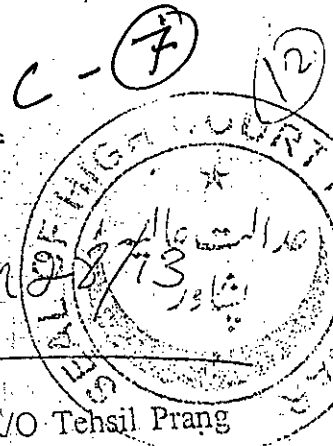 C - 7
12
SEAL OF HIGH COURT
عدالت عالیہ
پشاور
/O Tehsil Prang